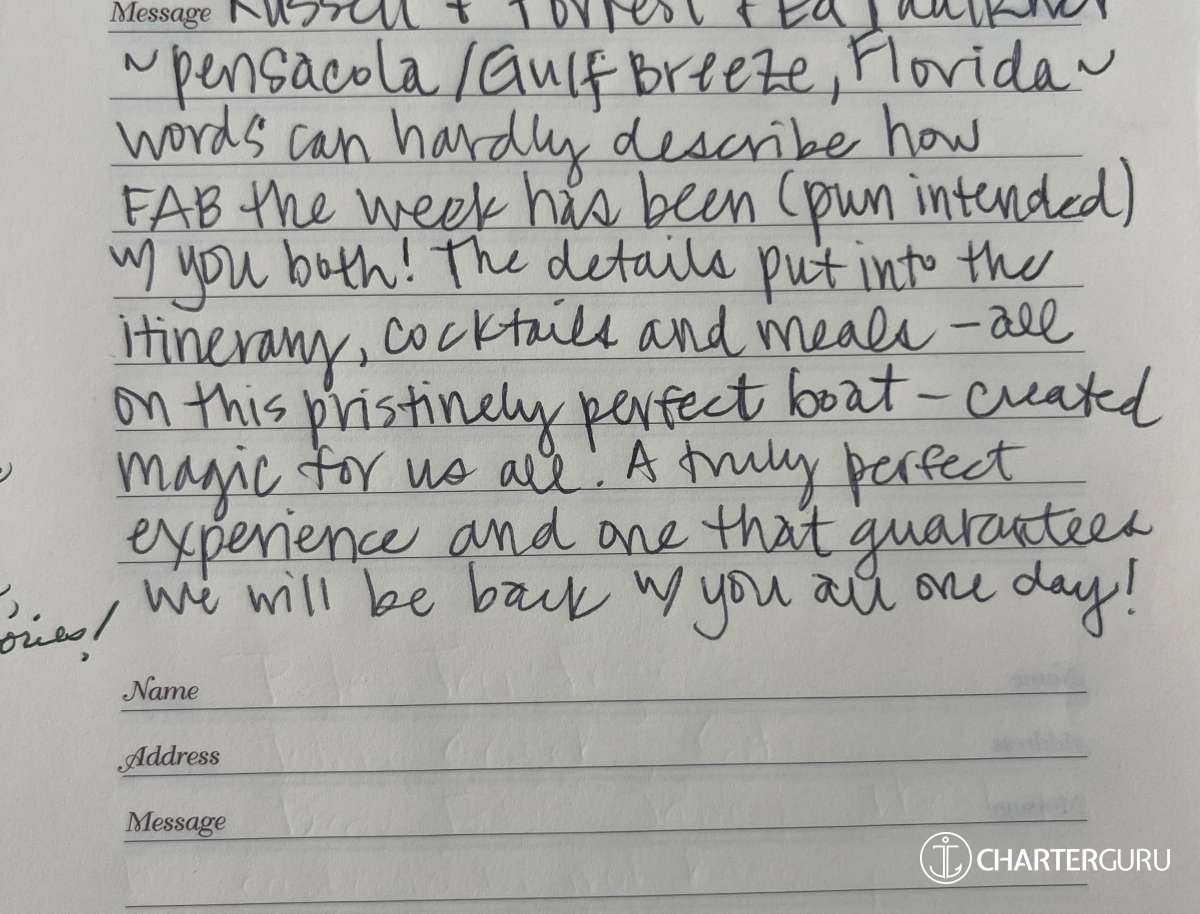 Message Russell + Forrest + Ed Faulkner
~pensacola/Gulf Breeze, Florida~
words can hardly describe how
FAB the week has been (pun intended)
w/ you both! The details put into the
itinerary, cocktails and meals - all
on this pristinely perfect boat - created
magic for us all. A truly perfect
experience and one that guarantees
we will be back w/ you all one day!
ories!
Name
Address
Message
CHARTERGURU